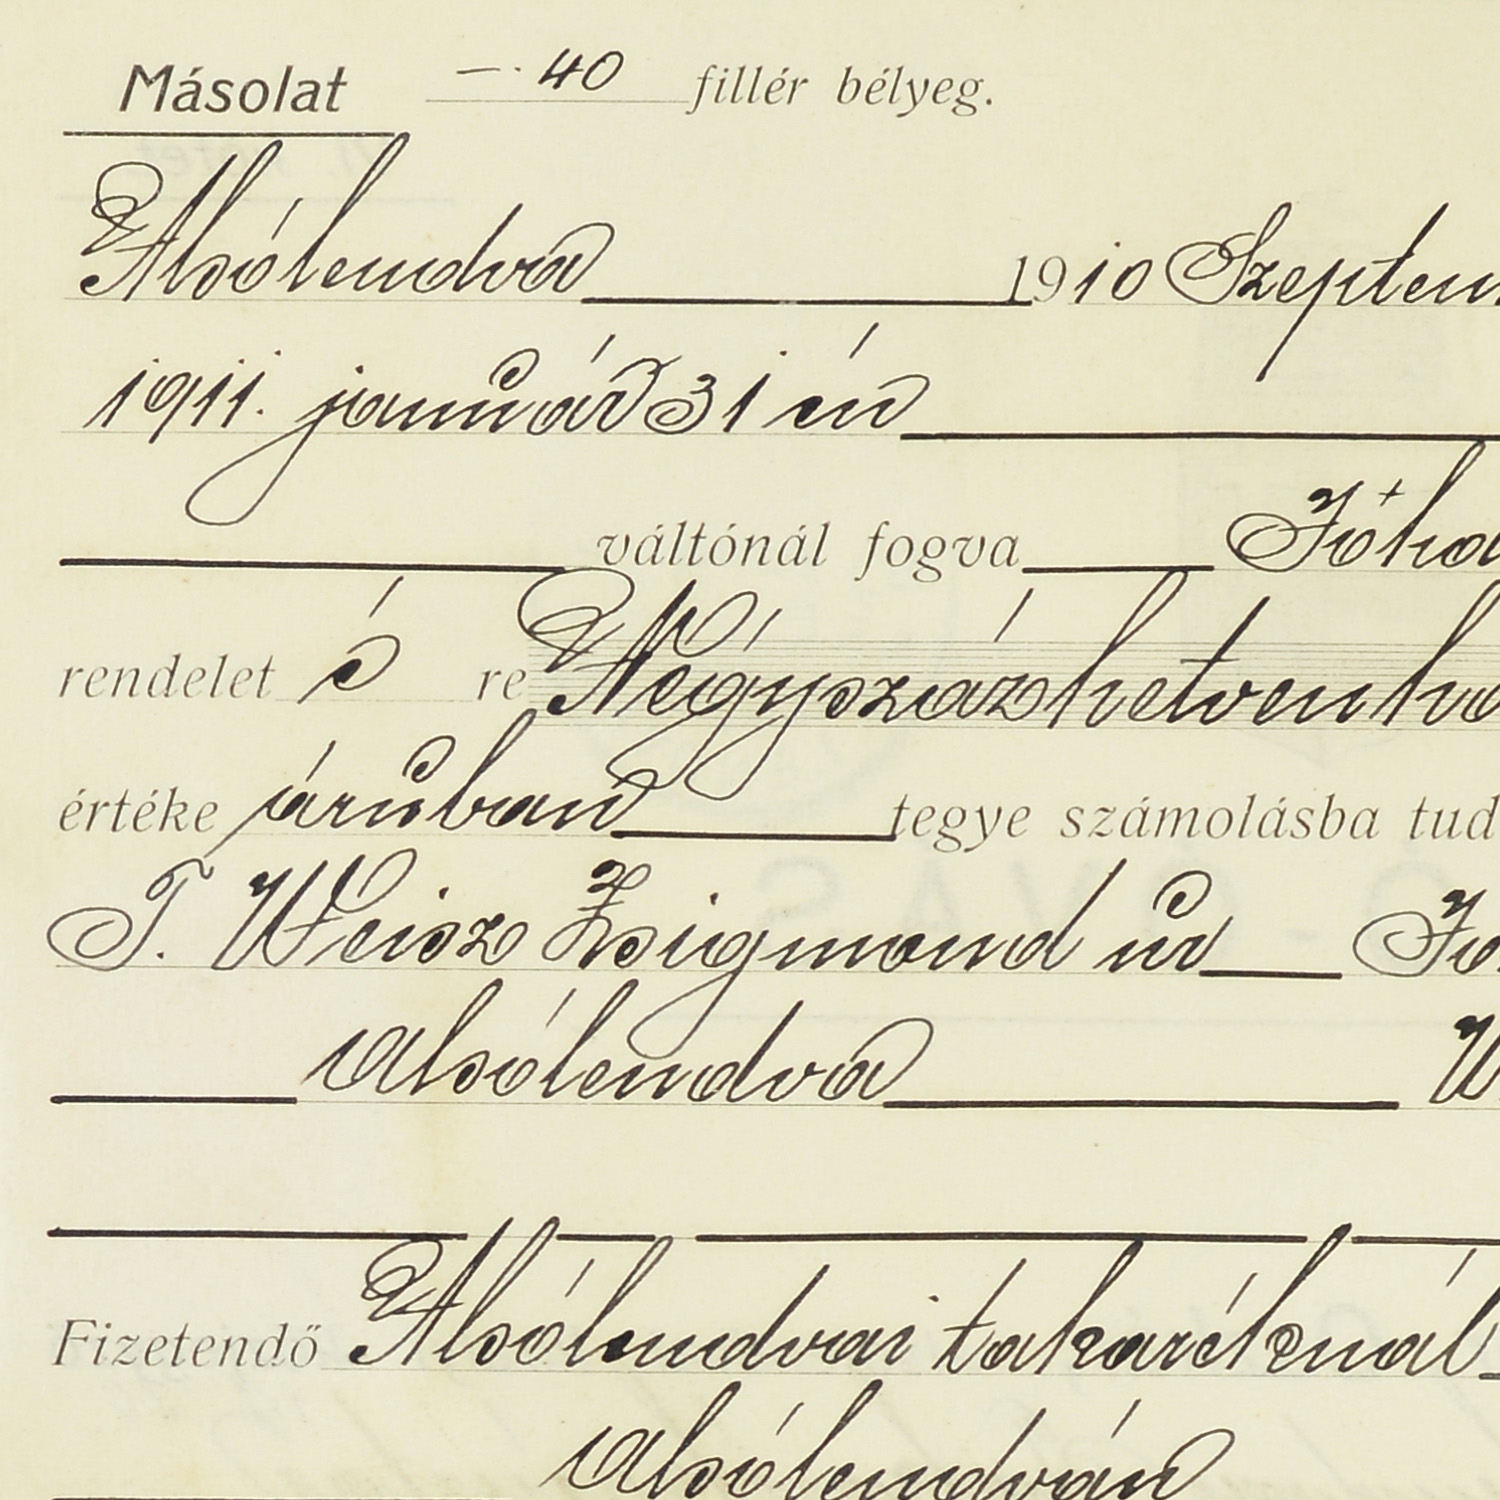 Másolat —. 40 fillér bélyeg.
Alsólendva 1910 Szeptem
1911. január 31 én
váltónál fogva
rendelet é re Négyszázhetvenhá
értéke áruban tegye számolásba tud
T. Weisz Zsigmond úr
Alsólendva
Fizetendő Alsólendvai takaréknál
Alsólendván